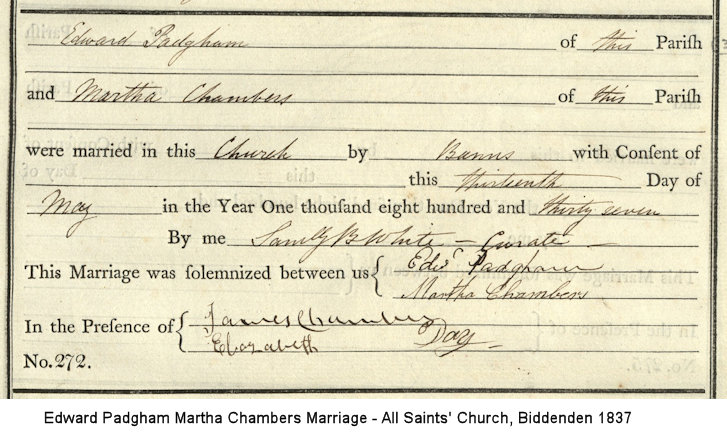 Edward Padgham of this Pariſh
and Martha Chambers of this Pariſh
were married in this Church by Banns with Conſent of
this thirteenth Day of
May in the Year One thouſand eight hundred and thirty seven
By me B White – Curate –
This Marriage was ſolemnized between us { Edwd Padgham
Martha Chambers
In the Preſence of { James Chambers
Elizabeth Day
No. 272.
Edward Padgham Martha Chambers Marriage - All Saints' Church, Biddenden 1837